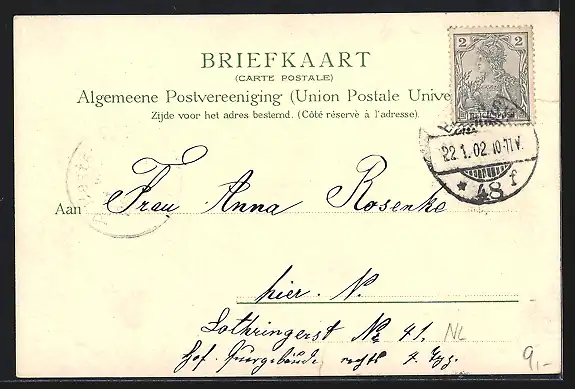 BRIEFKAART
(CARTE POSTALE)
Algemeene Postvereeniging (Union Postale Unive
Zijde voor het adres bestemd. (Côté réservé à l'adresse).
2 2
REICHSPOST
22 1.02.10-11V.
* 48 f
Aan Frau Anna Rosenke
hier. N.
Lothringerst No 41.
NL
Hof. Quergebäude rechts
9,-